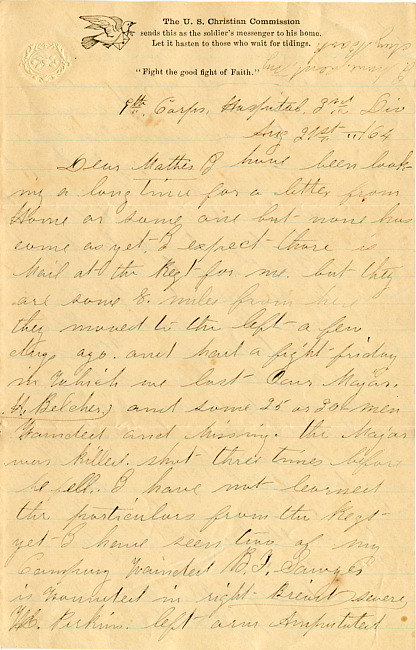 The U. S. Christian Commission
sends this as the soldier's messenger to his home.
Let it hasten to those who wait for tidings.
"Fight the good fight of Faith."
9th Corps, Hospital, 3rd Div
Aug 21st /64
Dear Mother I have been look-
ing a long time for a letter from
Home or some one but none has
come as yet I expect there is
Mail at the Regt for me. but they
are some 8. miles from here
they moved to the left a few
days ago. and had a fight friday
in which we lost Our Major.
Belcher, and some 25 or 30 men
Wounded and Missing. the Major
was Killed. shot three times before
he fell. I have not learned
the particulars from the Regt
yet I have seen two of my
Company Wounded B. F. Sawyer
is Wounded in right Breast severe
Perkins. left arm Amputated